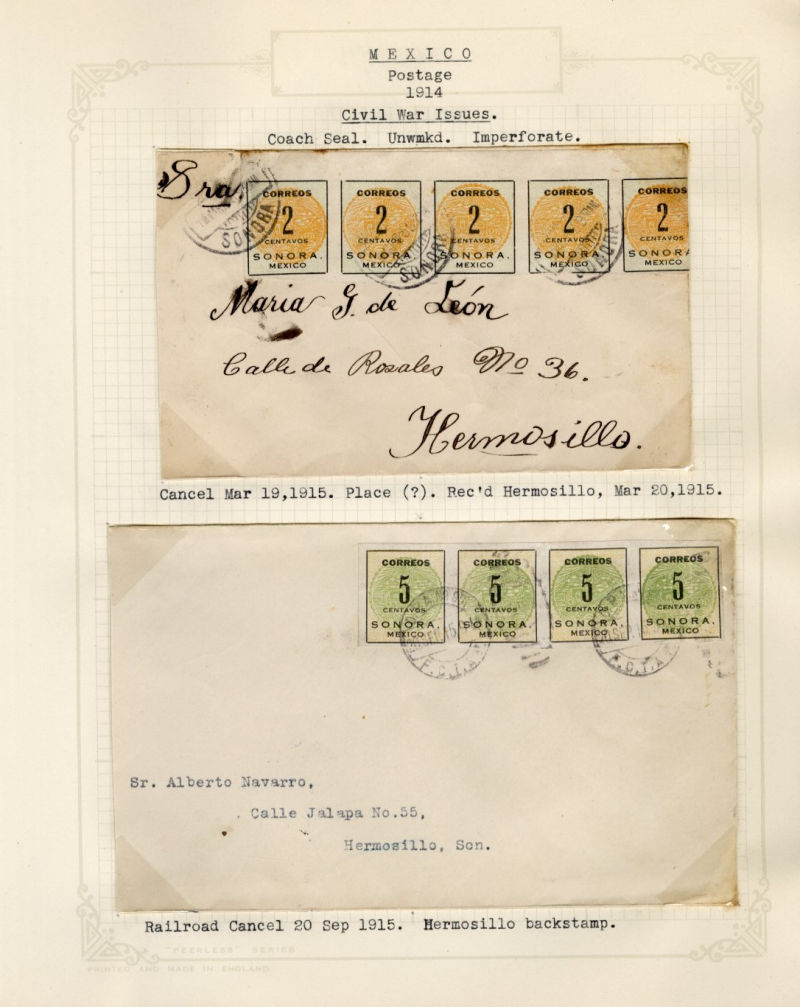 MEXICO
Postage
1914
Civil War Issues.
Coach Seal. Unwmkd. Imperforate.
Sra.
CORREOS CORREOS CORREOS CORREOS CORREOS
2 2 2 2 2
CENTAVOS CENTAVOS CENTAVOS CENTAVOS CENTAVOS
SONORA. SONORA. SONORA. SONORA. SONORA
MEXICO MEXICO MEXICO MEXICO MEXICO
SONORA SONORA
Maria G. de León
Calle de Rosales No 36.
Hermosillo.
Cancel Mar 19,1915. Place (?). Rec'd Hermosillo, Mar 20,1915.
CORREOS CORREOS CORREOS CORREOS
5 5 5 5
CENTAVOS CENTAVOS CENTAVOS CENTAVOS
SONORA. SONORA. SONORA. SONORA.
MEXICO MEXICO MEXICO MEXICO
Sr. Alberto Navarro,
Calle Jalapa No.55,
Hermosillo, Son.
Railroad Cancel 20 Sep 1915. Hermosillo backstamp.
"PEERLESS" SERIES
PRINTED AND MADE IN ENGLAND